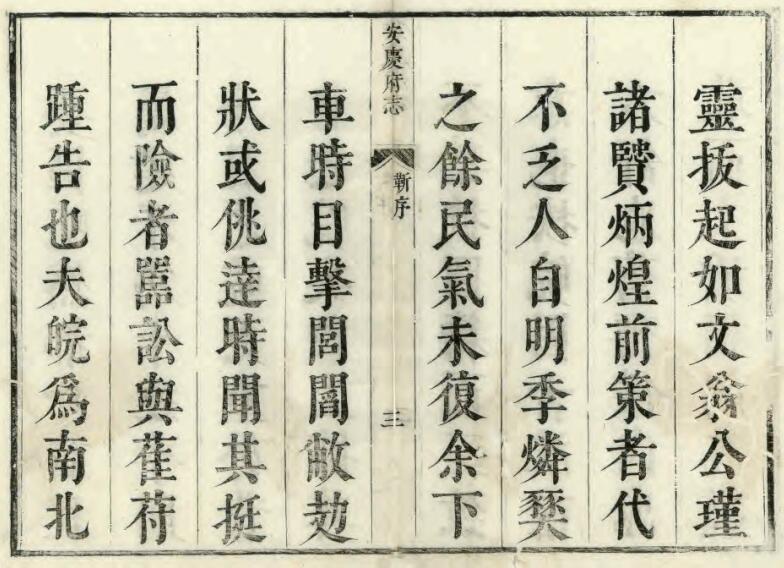 靈拔起如文翁公瑾
諸賢炳煌前策者代
不乏人自明季燐燹
之餘民氣未復余下
安慶府志
靳序
三
車時目擊閭閻敝攰
狀或佻達時聞其挺
而險者嚚訟與萑苻
踵告也夫皖爲南北